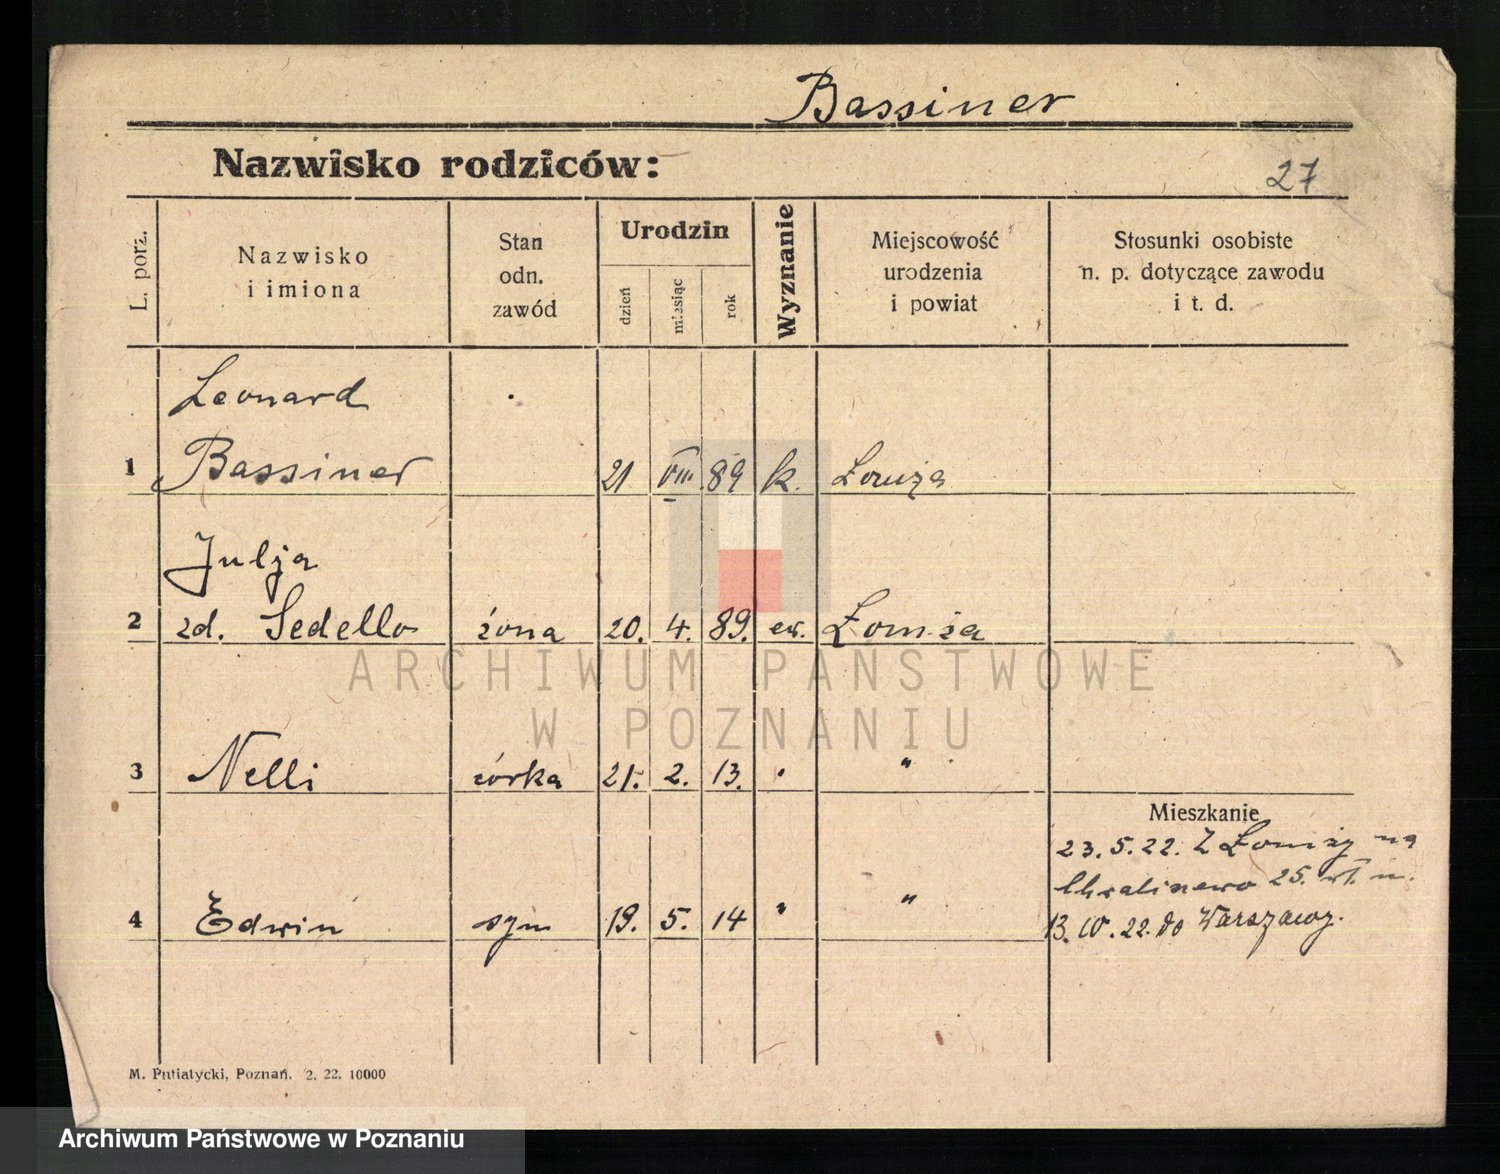 Bassiner
Nazwisko rodziców:
27
L. porz.
Nazwisko
i imiona
Stan
odn.
zawód
Urodzin
dzień
miesiąc
rok
Wyznanie
Miejscowość
urodzenia
i powiat
Stosunki osobiste
n. p. dotyczące zawodu
i t. d.
Leonard
1 Bassiner 21 VIII 89 k. Łomża
Julja
2 zd. Sedello żona 20. 4. 89. ew. Łomża
ARCHIWUM PAŃSTWOWE
W POZNANIU
3 Nelli córka 21. 2. 13. " "
Mieszkanie
23.5.22. Z Łomży na
25.
4 Edwin syn 19. 5. 14 " "
13. IV. 22. do Warszawy.
M. Putiatycki, Poznań. 2. 22. 10000
Archiwum Państwowe w Poznaniu